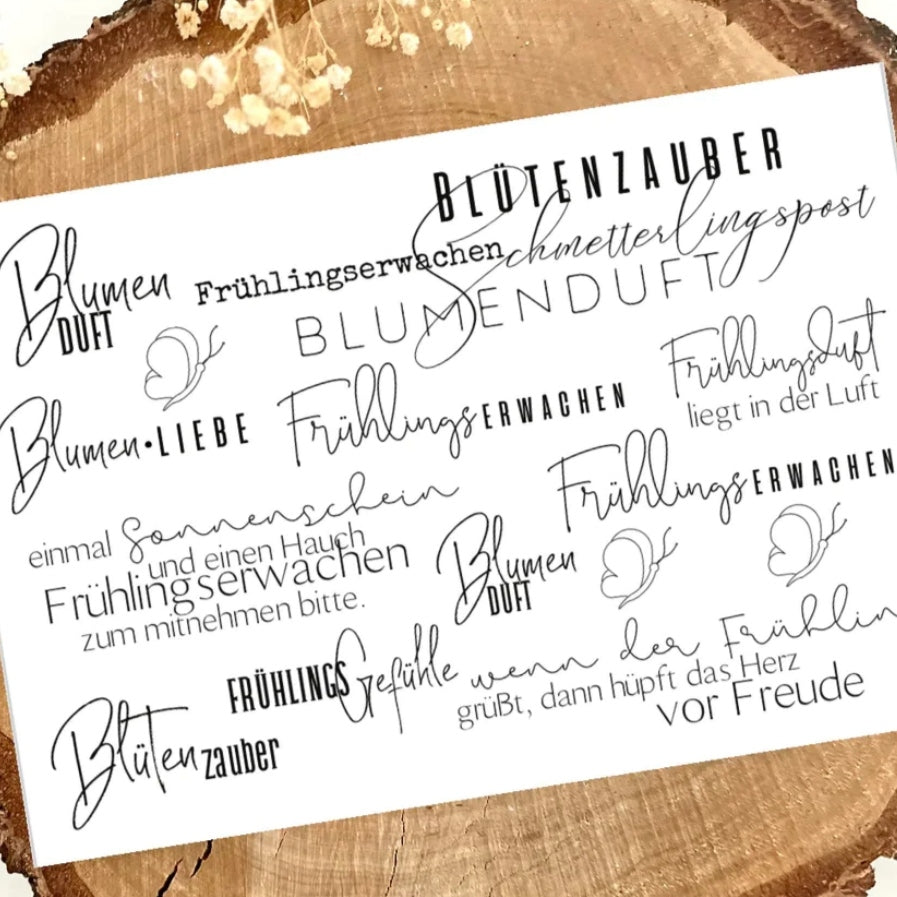 BLÜTENZAUBER
Schmetterlingspost
Frühlingserwachen
BLUMENDUFT
Blumen
DUFT
Frühlingsduft
liegt in der Luft
Blumen•LIEBE
FrühlingsERWACHEN
FrühlingsERWACHEN
einmal Sonnenschein
und einen Hauch
Frühlingserwachen
zum mitnehmen bitte.
Blumen
DUFT
wenn der Frühlin
grüßt, dann hüpft das Herz
vor Freude
FRÜHLINGSGefühle
Blütenzauber